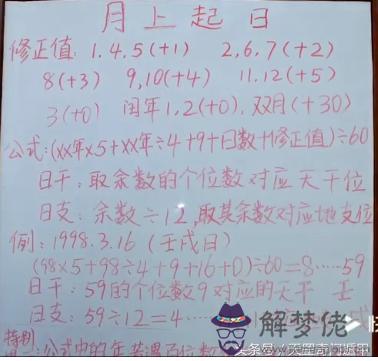 月上起日
修正值: 1.4.5(+1) 2,6,7(+2)
8(+3) 9,10(+4) 11.12(+5)
3(+0) 闰年1,2(+0), 双月(+30)
公式:(xx年×5+xx年÷4+9+日数+修正值)÷60
日干: 取余数的个位数对应天干位
日支: 余数÷12,取其余数对应地支位
例: 1998.3.16 (壬戌日)
(98×5+98÷4+9+16+0)÷60=8……59
日干: 59的个位数9对应的天干 壬
日支: 59÷12=4……
解梦佬
特别
公式中的年若遇